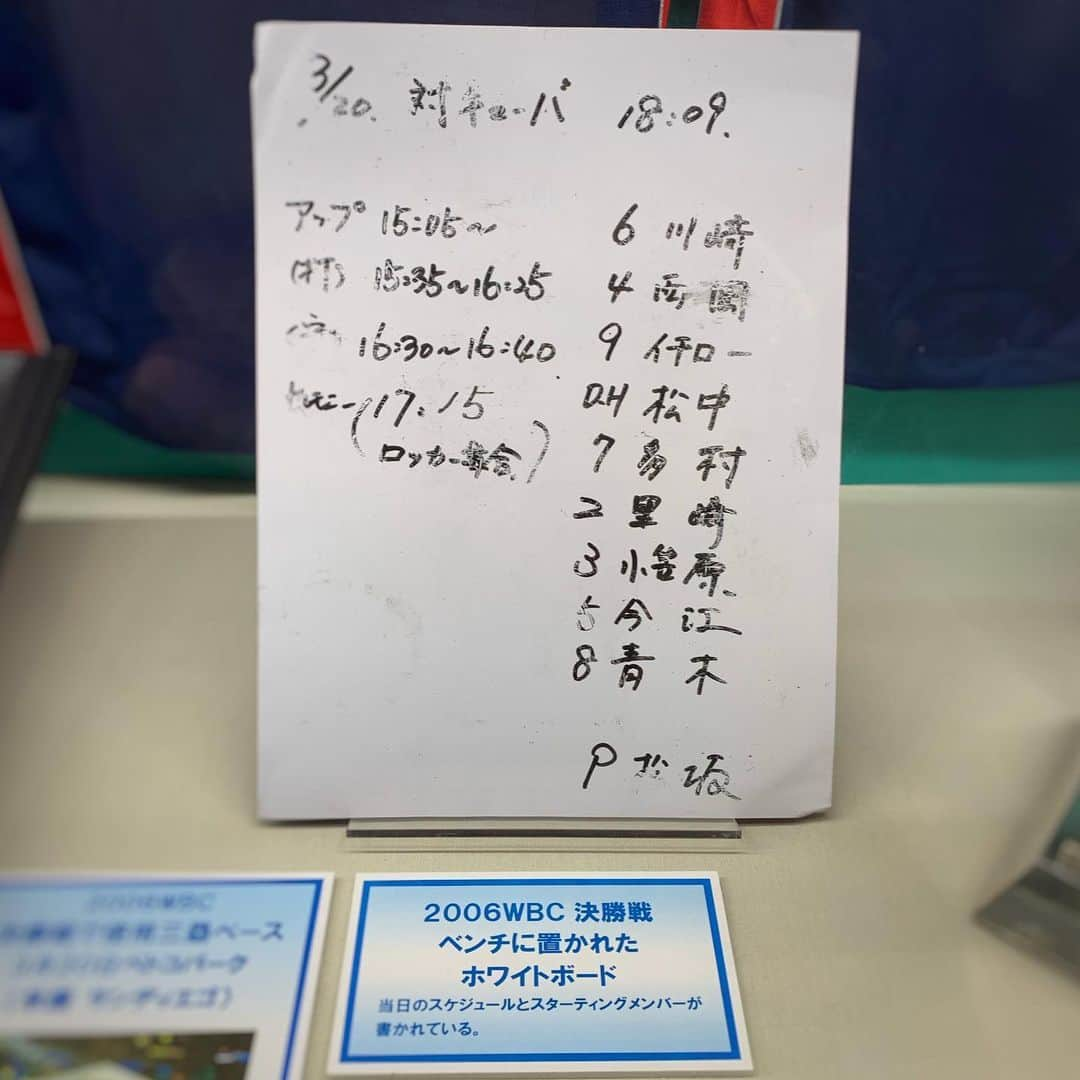 3/20. 対キューバ 18:09.
アップ 15:05〜
(打) 15:35〜16:25
16:30〜16:40
セレモニー 17:15
(ロッカー集合)
6 川崎
4 西岡
9 イチロー
DH 松中
7 多村
2 里崎
3 小笠原
5 今江
8 青木
P 松坂
2006WBC
三塁ベース
パーク
サンディエゴ)
2006WBC 決勝戦
ベンチに置かれた
ホワイトボード
当日のスケジュールとスターティングメンバーが
書かれている。